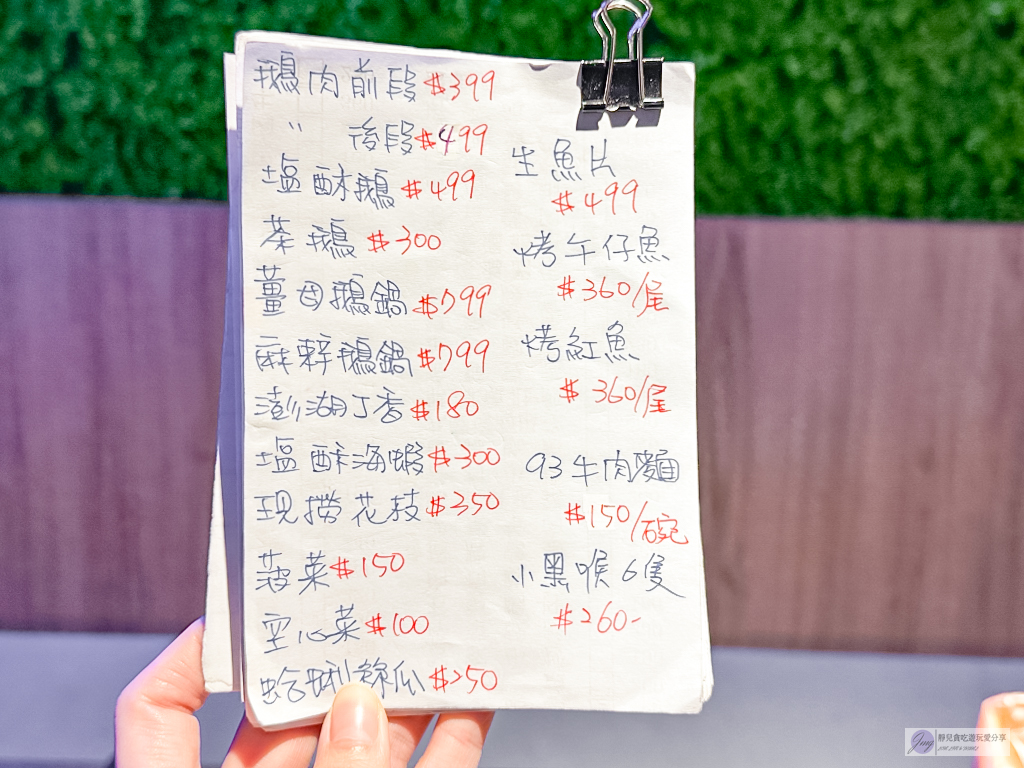 鵝肉前段$399
〃 後段$499
塩酥鵝$499
茶鵝$300
薑母鵝鍋$799
麻辣鵝鍋$799
澎湖丁香$180
塩酥海蝦$300
現撈花枝$350
菠菜$150
空心菜$100
蛤蜊絲瓜$250
生魚片
$499
烤午仔魚
$360/尾
烤紅魚
$360/尾
93牛肉麵
$150/碗
小黑喉6隻
$260-
靜兒貪吃遊玩愛分享